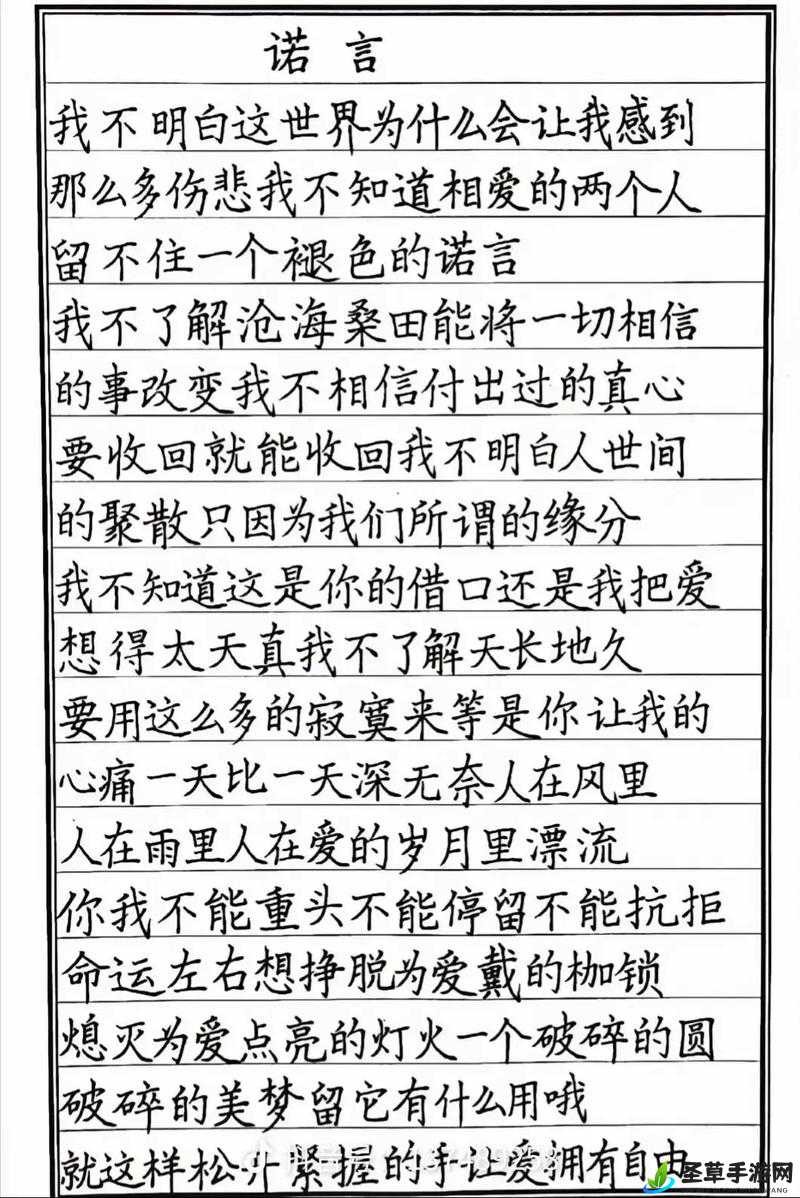 诺言
我不明白这世界为什么会让我感到
那么多伤悲我不知道相爱的两个人
留不住一个褪色的诺言
我不了解沧海桑田能将一切相信
的事改变我不相信付出过的真心
要收回就能收回我不明白人世间
的聚散只因为我们所谓的缘分
我不知道这是你的借口还是我把爱
想得太天真我不了解天长地久
要用这么多的寂寞来等是你让我的
心痛一天比一天深无奈人在风里
人在雨里人在爱的岁月里漂流
你我不能重头不能停留不能抗拒
命运左右想挣脱为爱戴的枷锁
熄灭为爱点亮的灯火一个破碎的圆
破碎的美梦留它有什么用哦
就这样松开紧握的手让爱拥有自由
圣草手游网